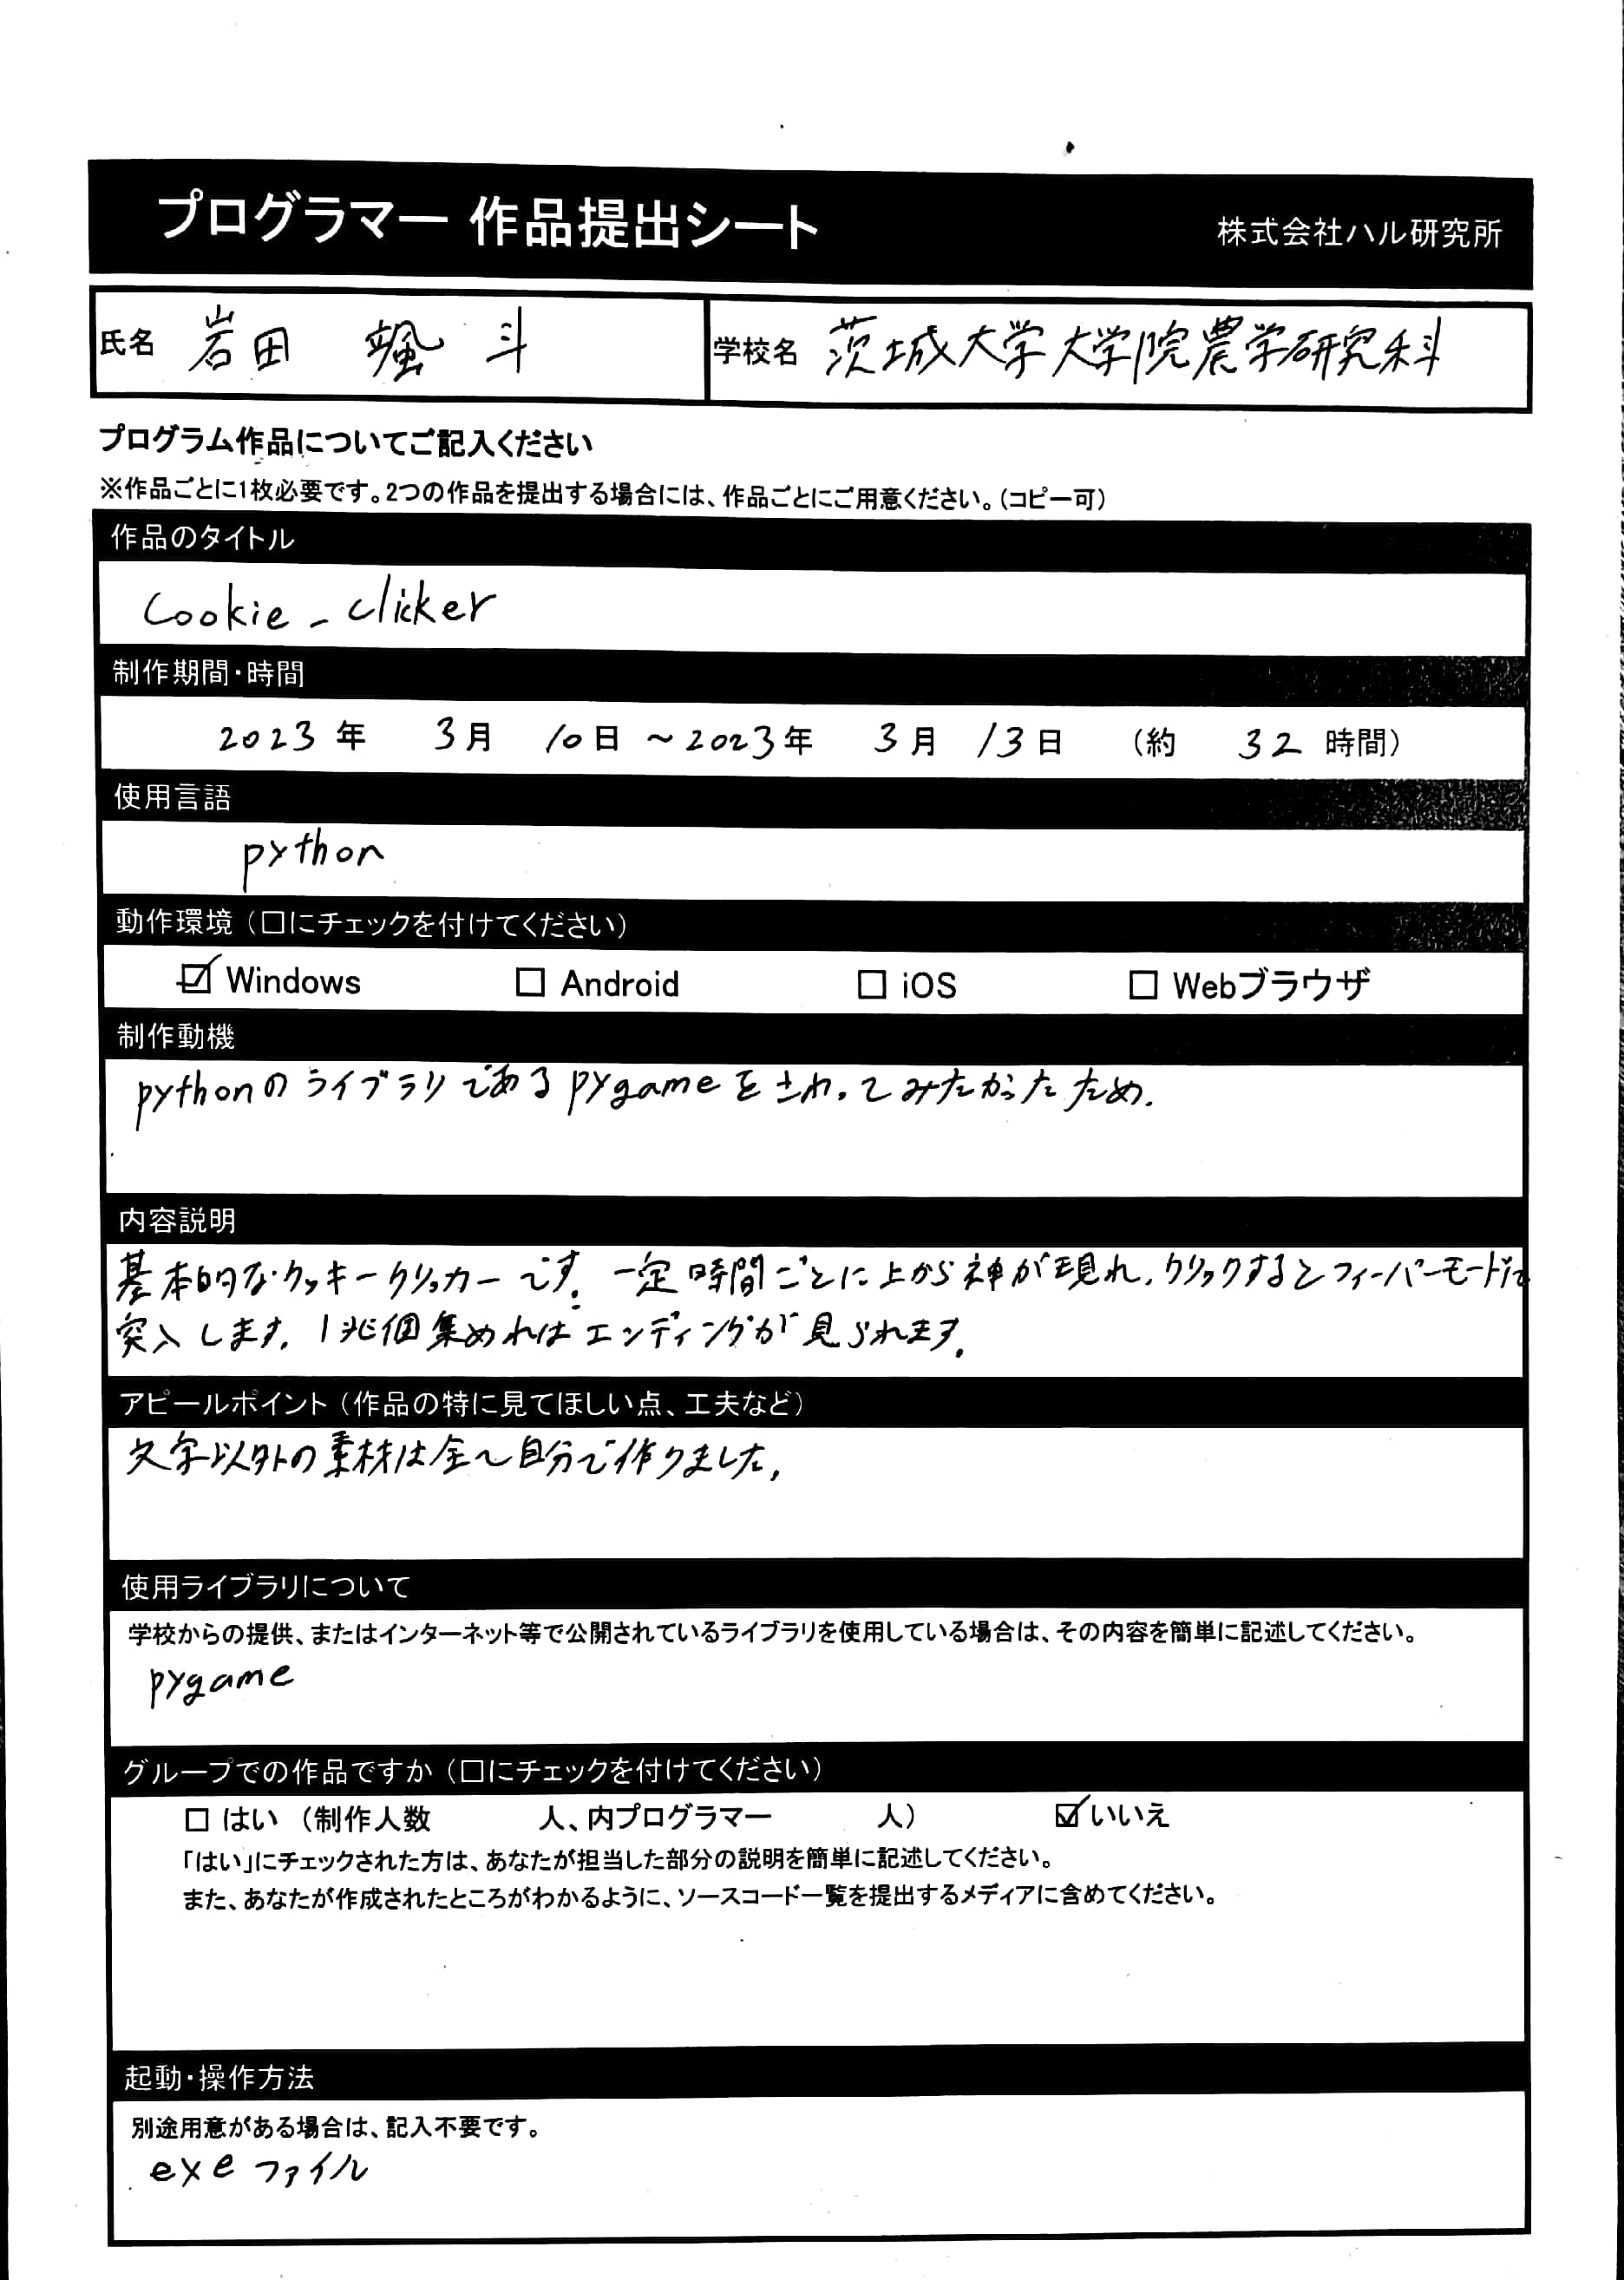 プログラマー 作品提出シート 株式会社ハル研究所
氏名 岩田 颯斗 学校名 茨城大学大学院農学研究科
プログラム作品についてご記入ください
※作品ごとに1枚必要です。2つの作品を提出する場合には、作品ごとにご用意ください。(コピー可)
作品のタイトル
Cookie_clicker
制作期間・時間
2023年 3月 10日 ~2023年 3月 13日 (約 32 時間)
使用言語
python
動作環境(□にチェックを付けてください)
☑ Windows □ Android □ iOS □ Webブラウザ
制作動機
pythonのライブラリであるpygameをさわってみたかったため.
内容説明
基本的なクッキークリッカーです. 一定時間ごとに上から神が現れ,クリックするとフィーバーモードに
突入します. 1兆個集めればエンディングが見られます.
アピールポイント(作品の特に見てほしい点、工夫など)
文字以外の素材は全て自分で作りました.
使用ライブラリについて
学校からの提供、またはインターネット等で公開されているライブラリを使用している場合は、その内容を簡単に記述してください。
pygame
グループでの作品ですか(□にチェックを付けてください)
□ はい (制作人数 人、内プログラマー 人) ☑いいえ
「はい」にチェックされた方は、あなたが担当した部分の説明を簡単に記述してください。
また、あなたが作成されたところがわかるように、ソースコード一覧を提出するメディアに含めてください。
起動・操作方法
別途用意がある場合は、記入不要です。
exeファイル